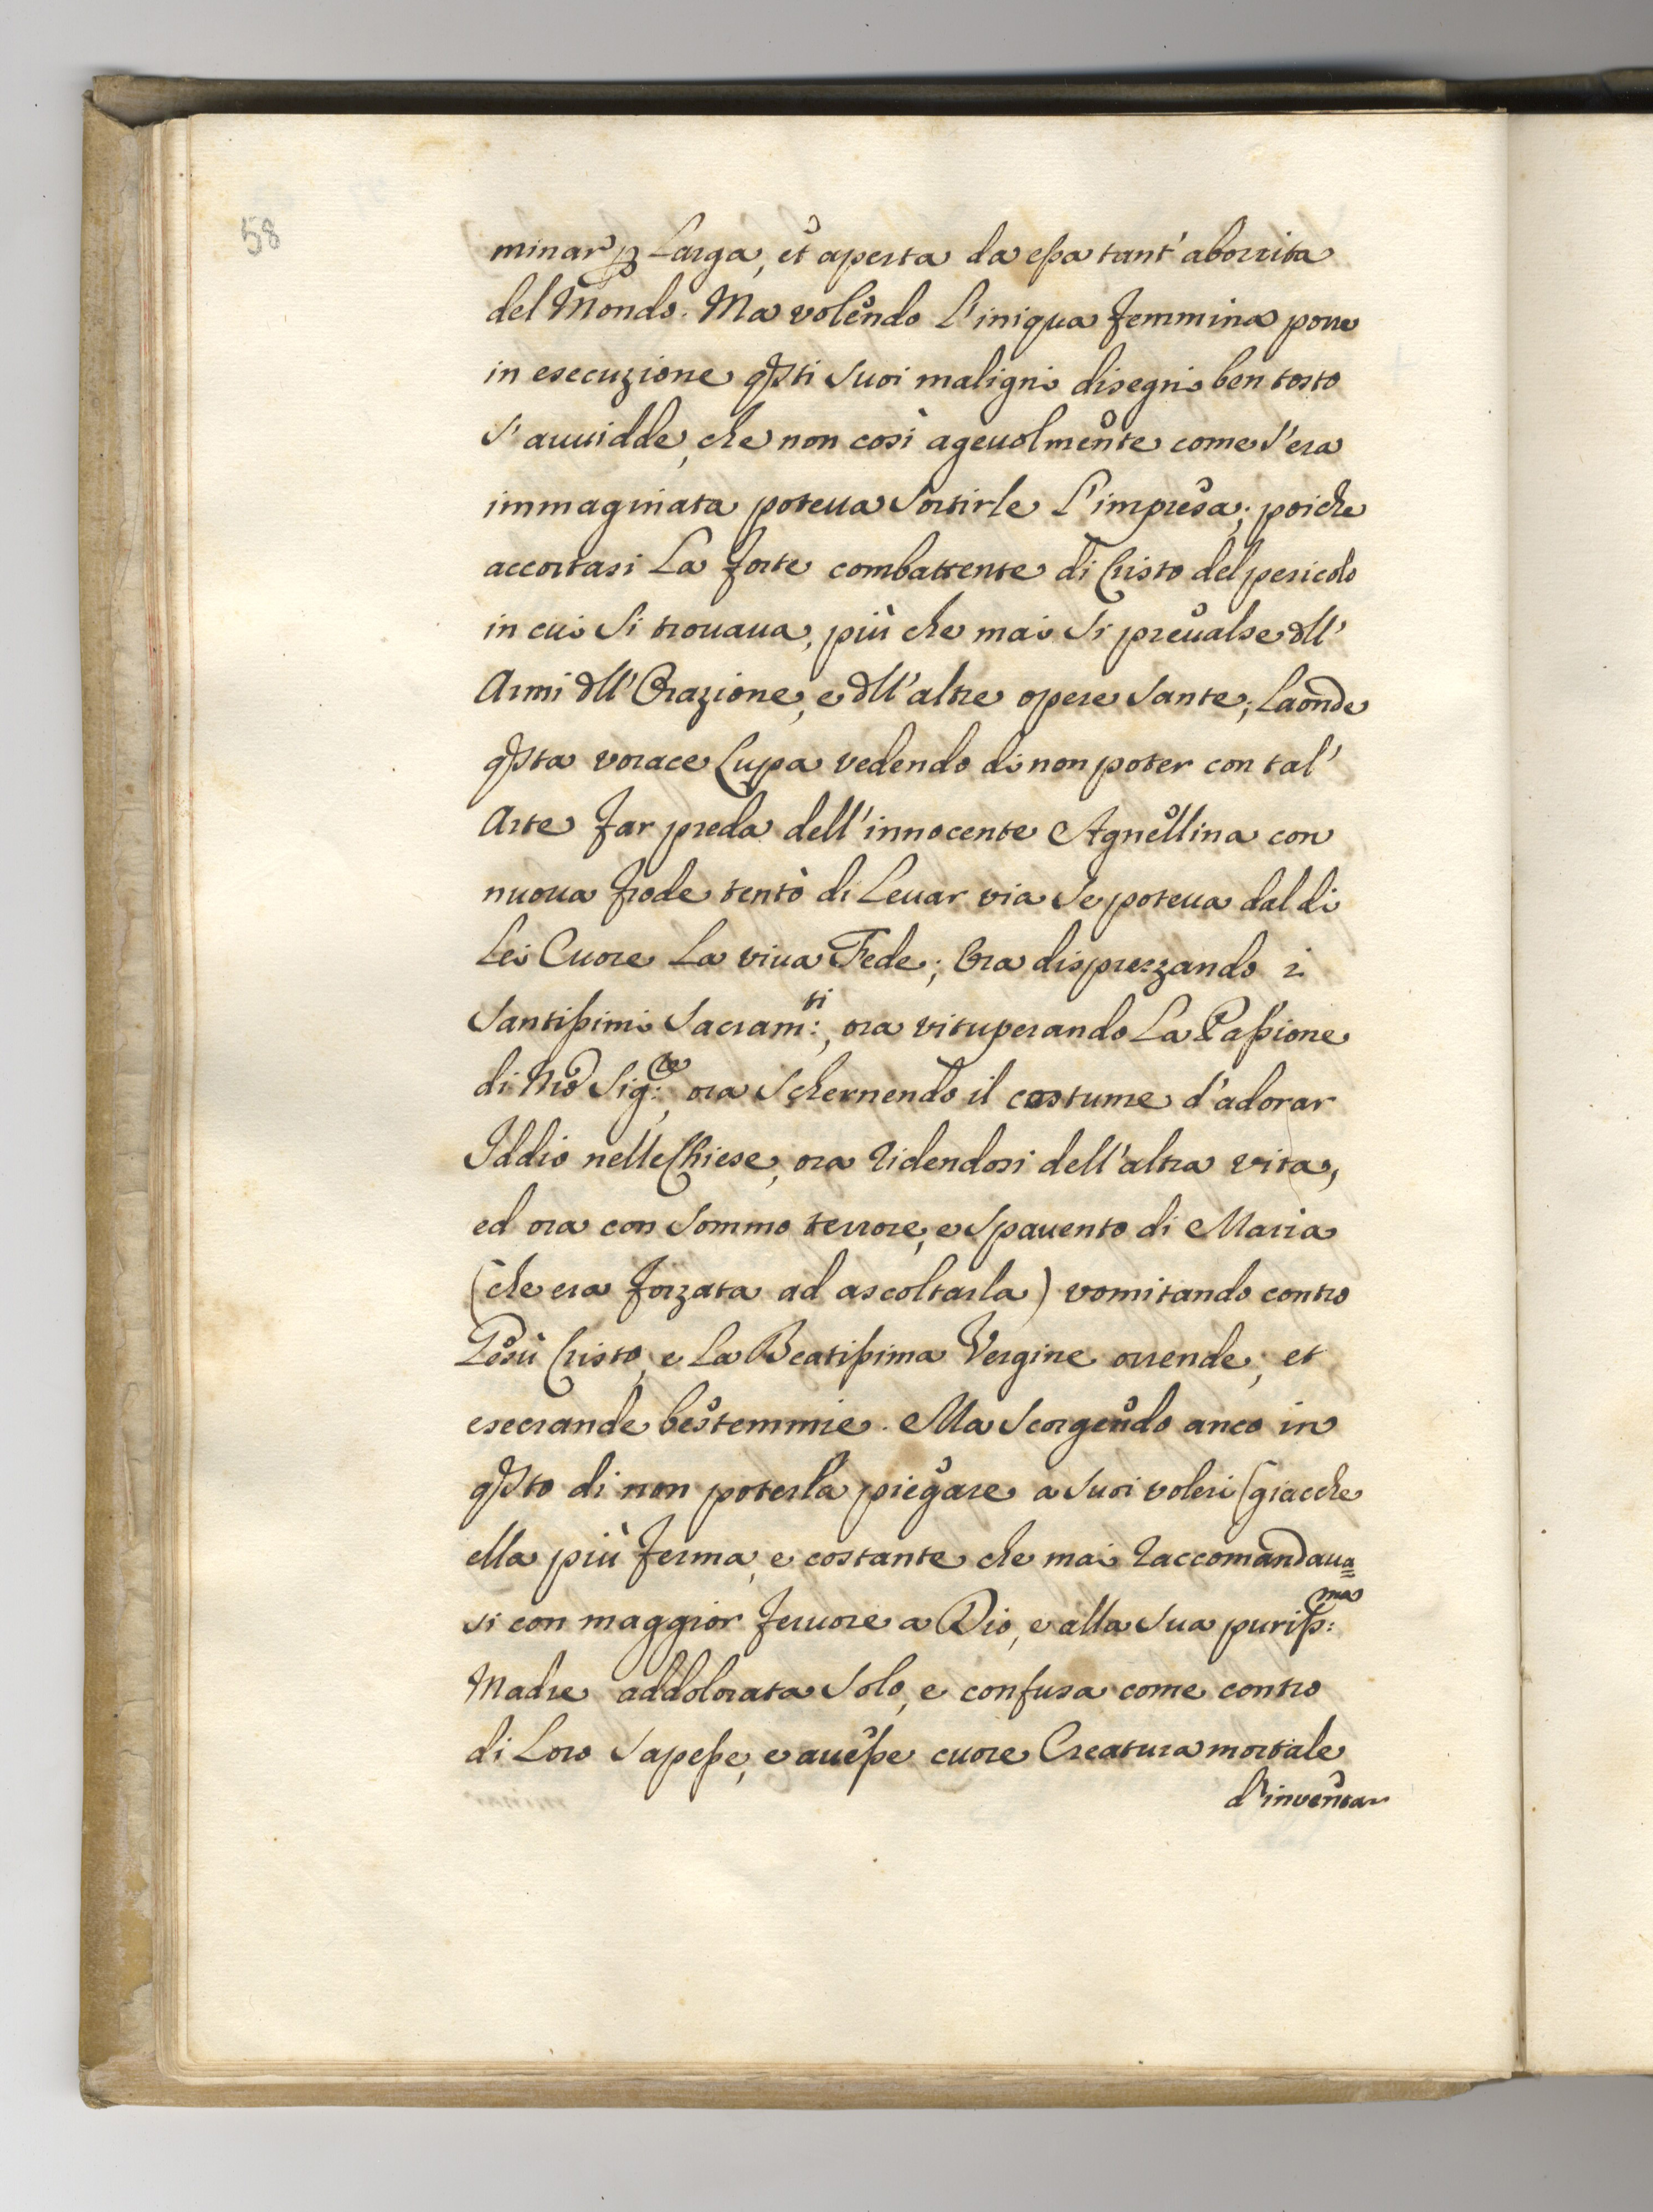 58
minar ꝑ Larga, et aperta da essa tant' aborrita
del Mondo. Ma volendo l'iniqua femmina porre
in esecuzione qsti suoi maligni disegni ben tosto
s'auuidde, che non così ageuolmente come s'era
immaginata poteua sortirle l'impresa; poiche
accortasi la forte combattente di Cristo del pericolo
in cui si trouaua, più che mai si preualse dll'
Armi dll'Orazione, e dll'altre opere sante; laonde
qsta vorace Lupa vedendo di non poter con tal'
Arte far preda dell'innocente Agnellina con
nuoua frode tentò di leuar via se poteua dal di
lei Cuore la viua Fede; Ora disprezzando i
Santissimi Sacram:ti, ora vituperando la Passione
di Nro Sig:re, ora schernendo il costume d'adorar
Iddio nelle Chiese, ora ridendosi dell'altra vita,
ed ora con sommo terrore, e spauento di Maria
(che era forzata ad ascoltarla) vomitando contro
Gesù Cristo, e la Beatissima Vergine orrende, et
esecrande bestemmie. Ma scorgendo anco in
qsto di non poterla piegare a suoi voleri (giacche
ella più ferma, e costante che mai raccomandaua=
si con maggior feruore a Dio, e alla sua puriss:ma
Madre addolorata solo, e confusa come contro
di loro sapesse, e auesse cuore Creatura mortale
d'inventar